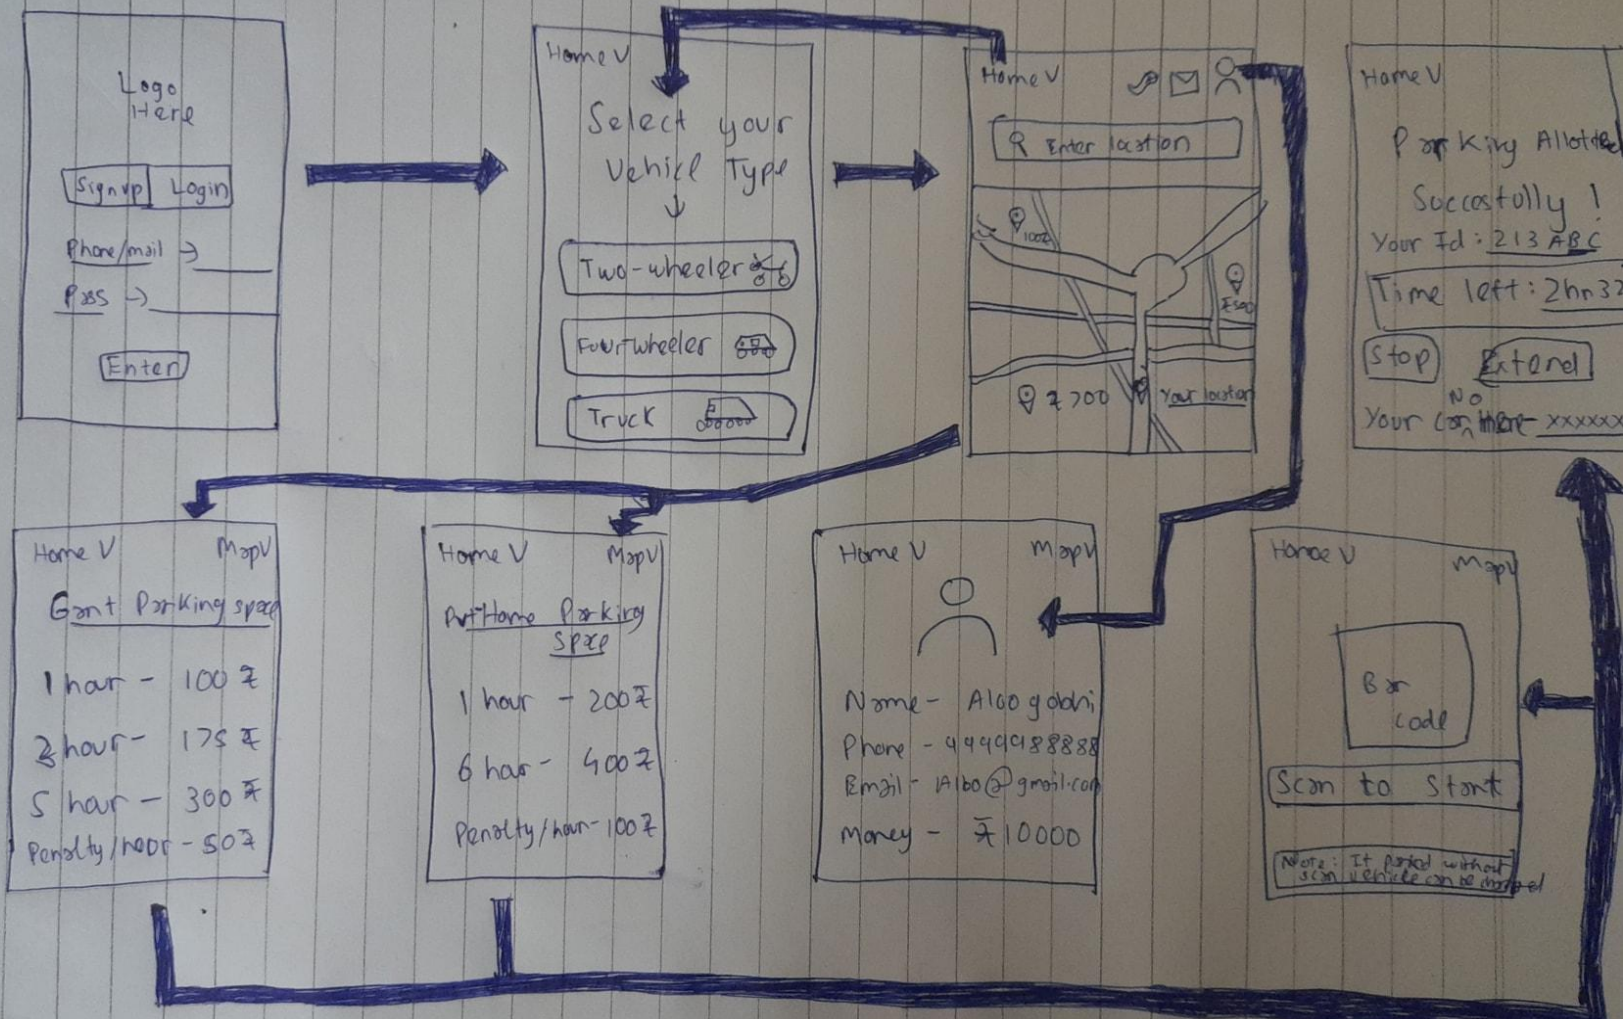 Logo
Here
Signup Login
Phone/mail →
Pass →
Enter
Home V
Select your
Vehicle Type
↓
Two-wheeler
Fourwheeler
Truck
Home V
Enter location
100₹
₹500
₹ 700
Your location
Home V
Parking Allotted
Succesfully !
Your Id : 213 ABC
Time left : 2hr 32
Stop Extend
No
Your car xxxxxx
Home V MapV
Govt Parking space
1 hour - 100 ₹
2 hour - 175 ₹
5 hour - 300 ₹
Penalty/hour - 50₹
Home V MapV
Pvt Home Parking
Space
1 hour - 200₹
6 hour - 400₹
Penalty/hour - 100₹
Home V MapV
Name - Aloo gobhi
Phone - 9999988888
Email - @gmail.com
Money - ₹ 10000
Home V MapV
Bar
code
Scan to Start
Note : If parked without
scan vehicle can be